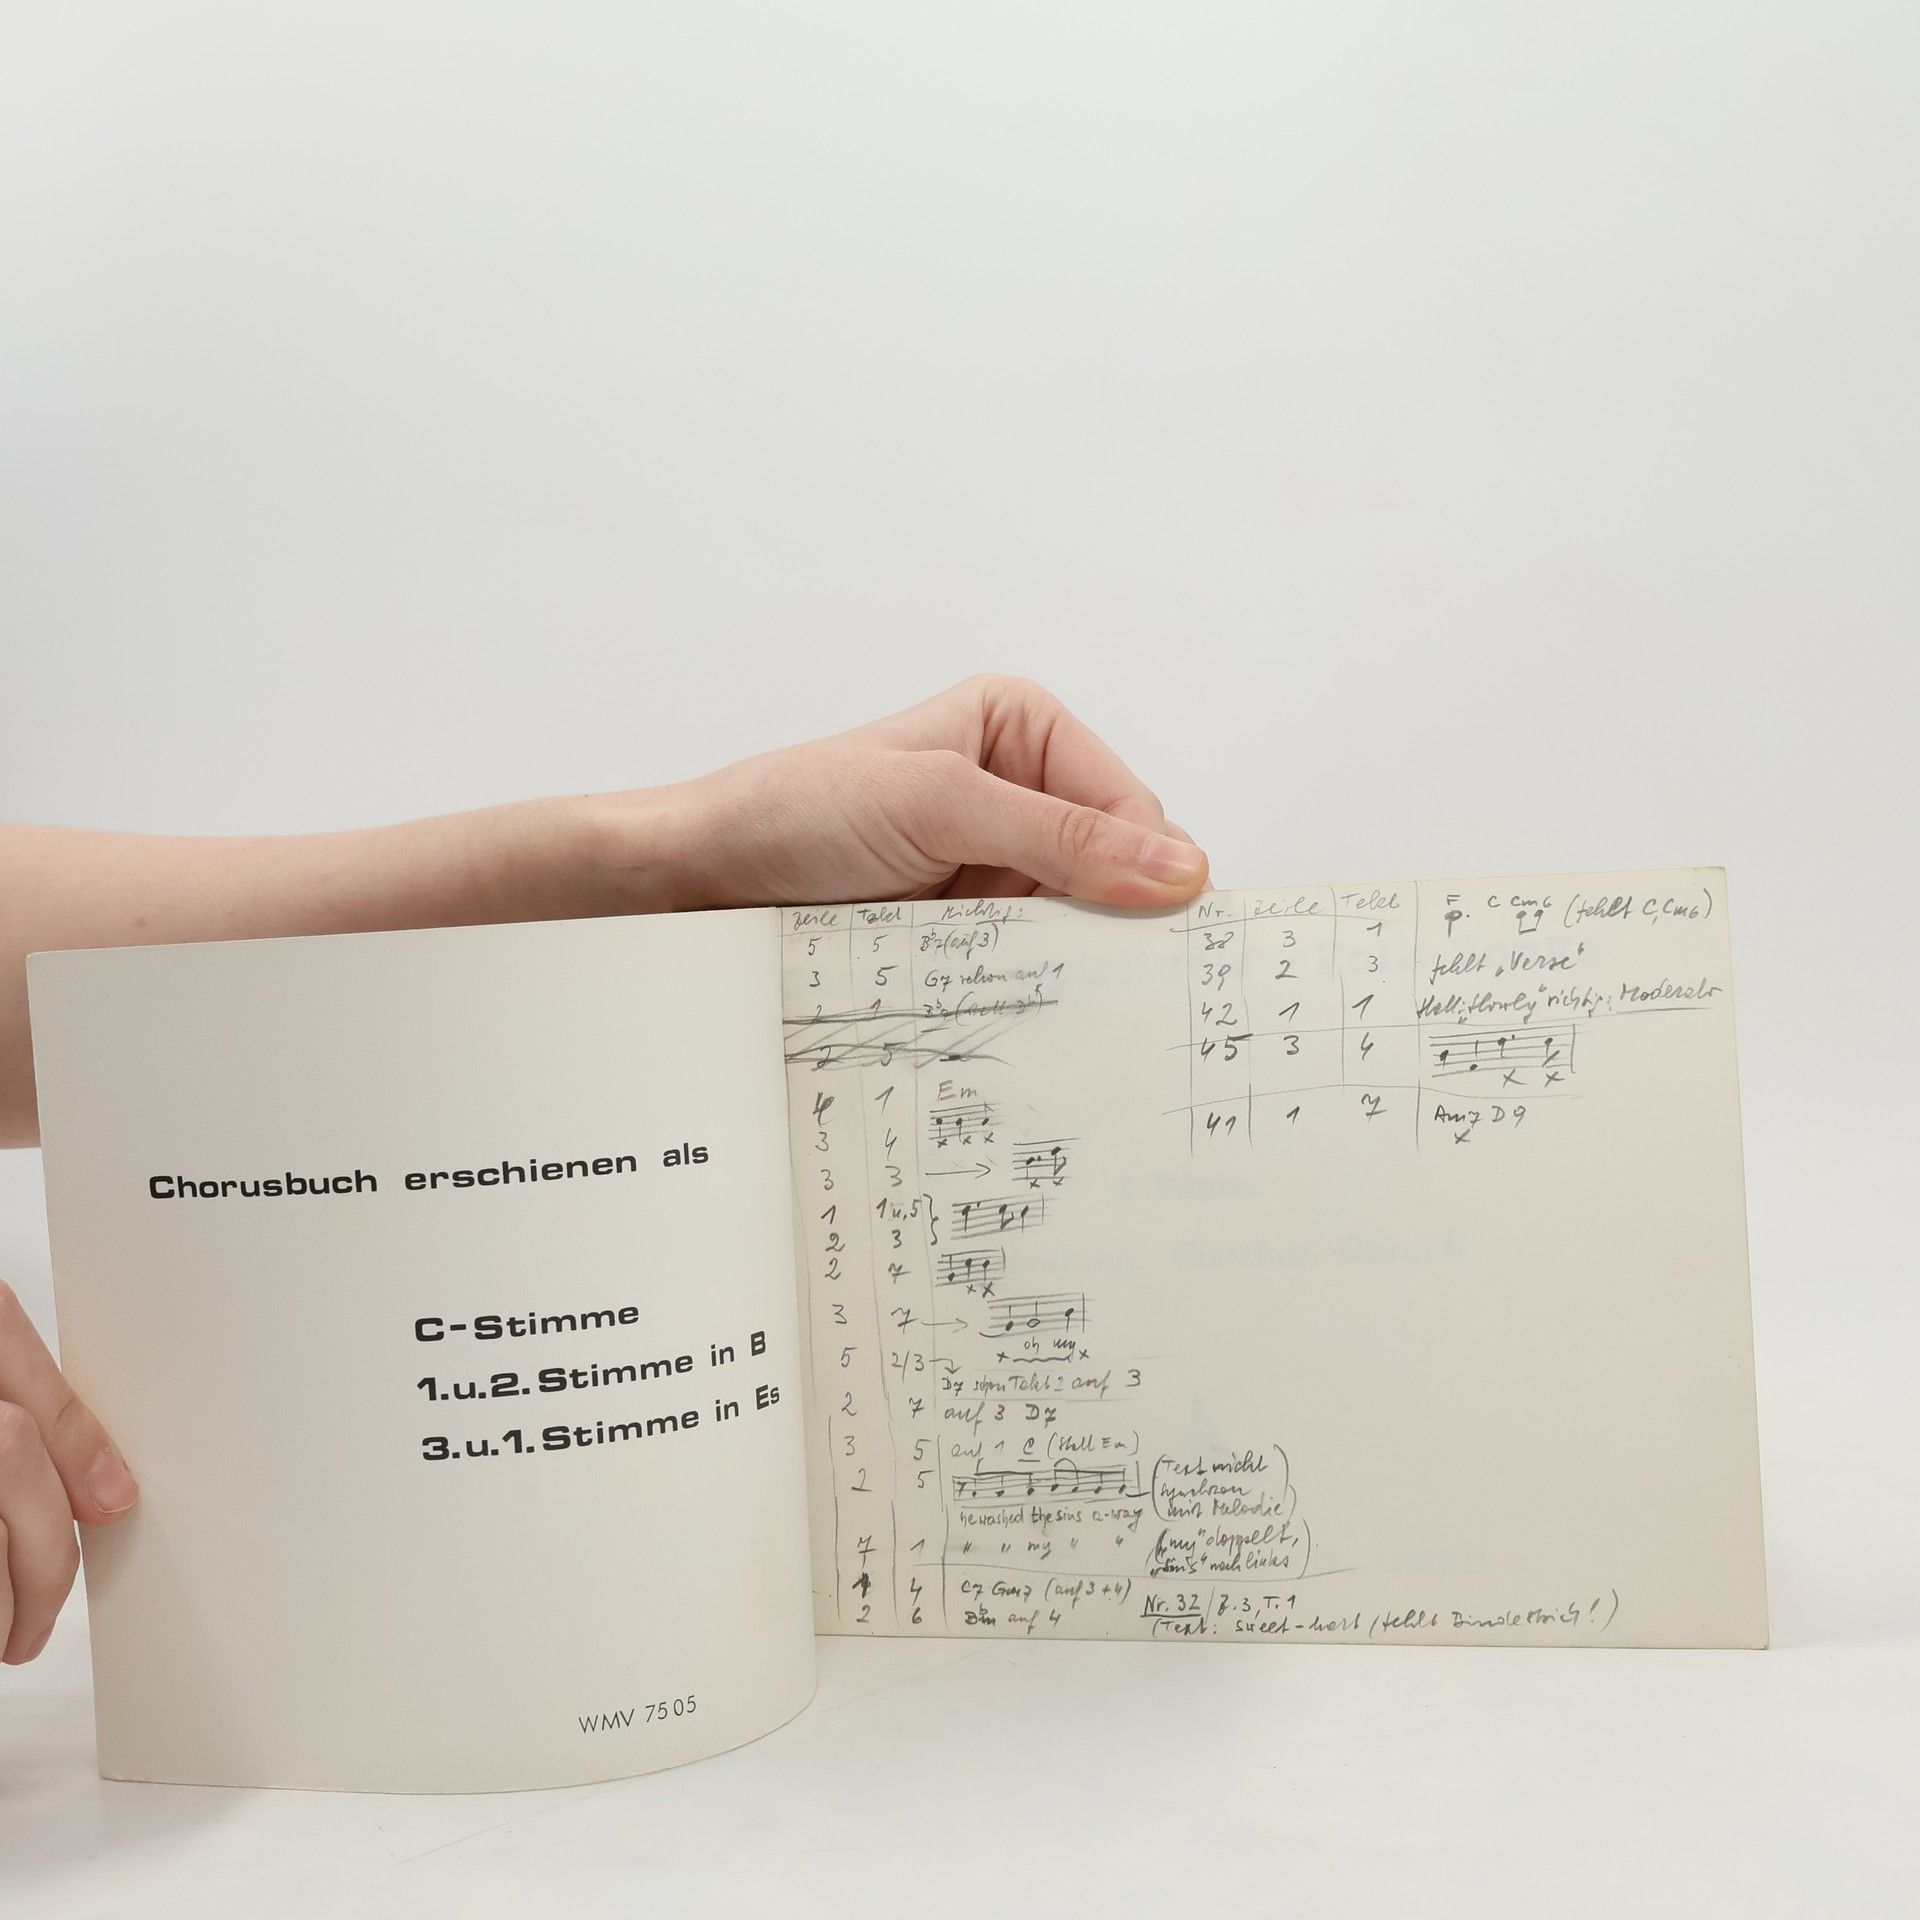 Chorusbuch erschienen als
C-Stimme
1.u.2.Stimme in B
3.u.1.Stimme in Es
WMV 7505
Zeile Takt Richtig:
5 5 B♭7 (auf 3)
3 5 G7 schon auf 1
2 1
2 5
4 1 Em
3 4
3 3
1 1 u. 5
2 3
2 7
3 7
oh my
5 2/3
D7 schon Takt 2 auf 3
2 7 auf 3 D7
3 5 auf 1 C (statt Em)
2 5 (Text nicht
synchron
mit Melodie)
he washed the sins a-way
7 1 " " my " " ("my" doppelt,
"sins" nach links)
1 4 C7 Gm7 (auf 3+4)
2 6 B♭m auf 4
Nr. 32 / Z. 3, T. 1
(Text: sweet-heart (fehlt Bindestrich!)
Nr. Zeile Takt
38 3 1 F C Cm6 (fehlt C, Cm6)
39 2 3 fehlt "Verse"
42 1 1 statt "Slowly" richtig: Moderato
45 3 4
41 1 7 Am7 D9